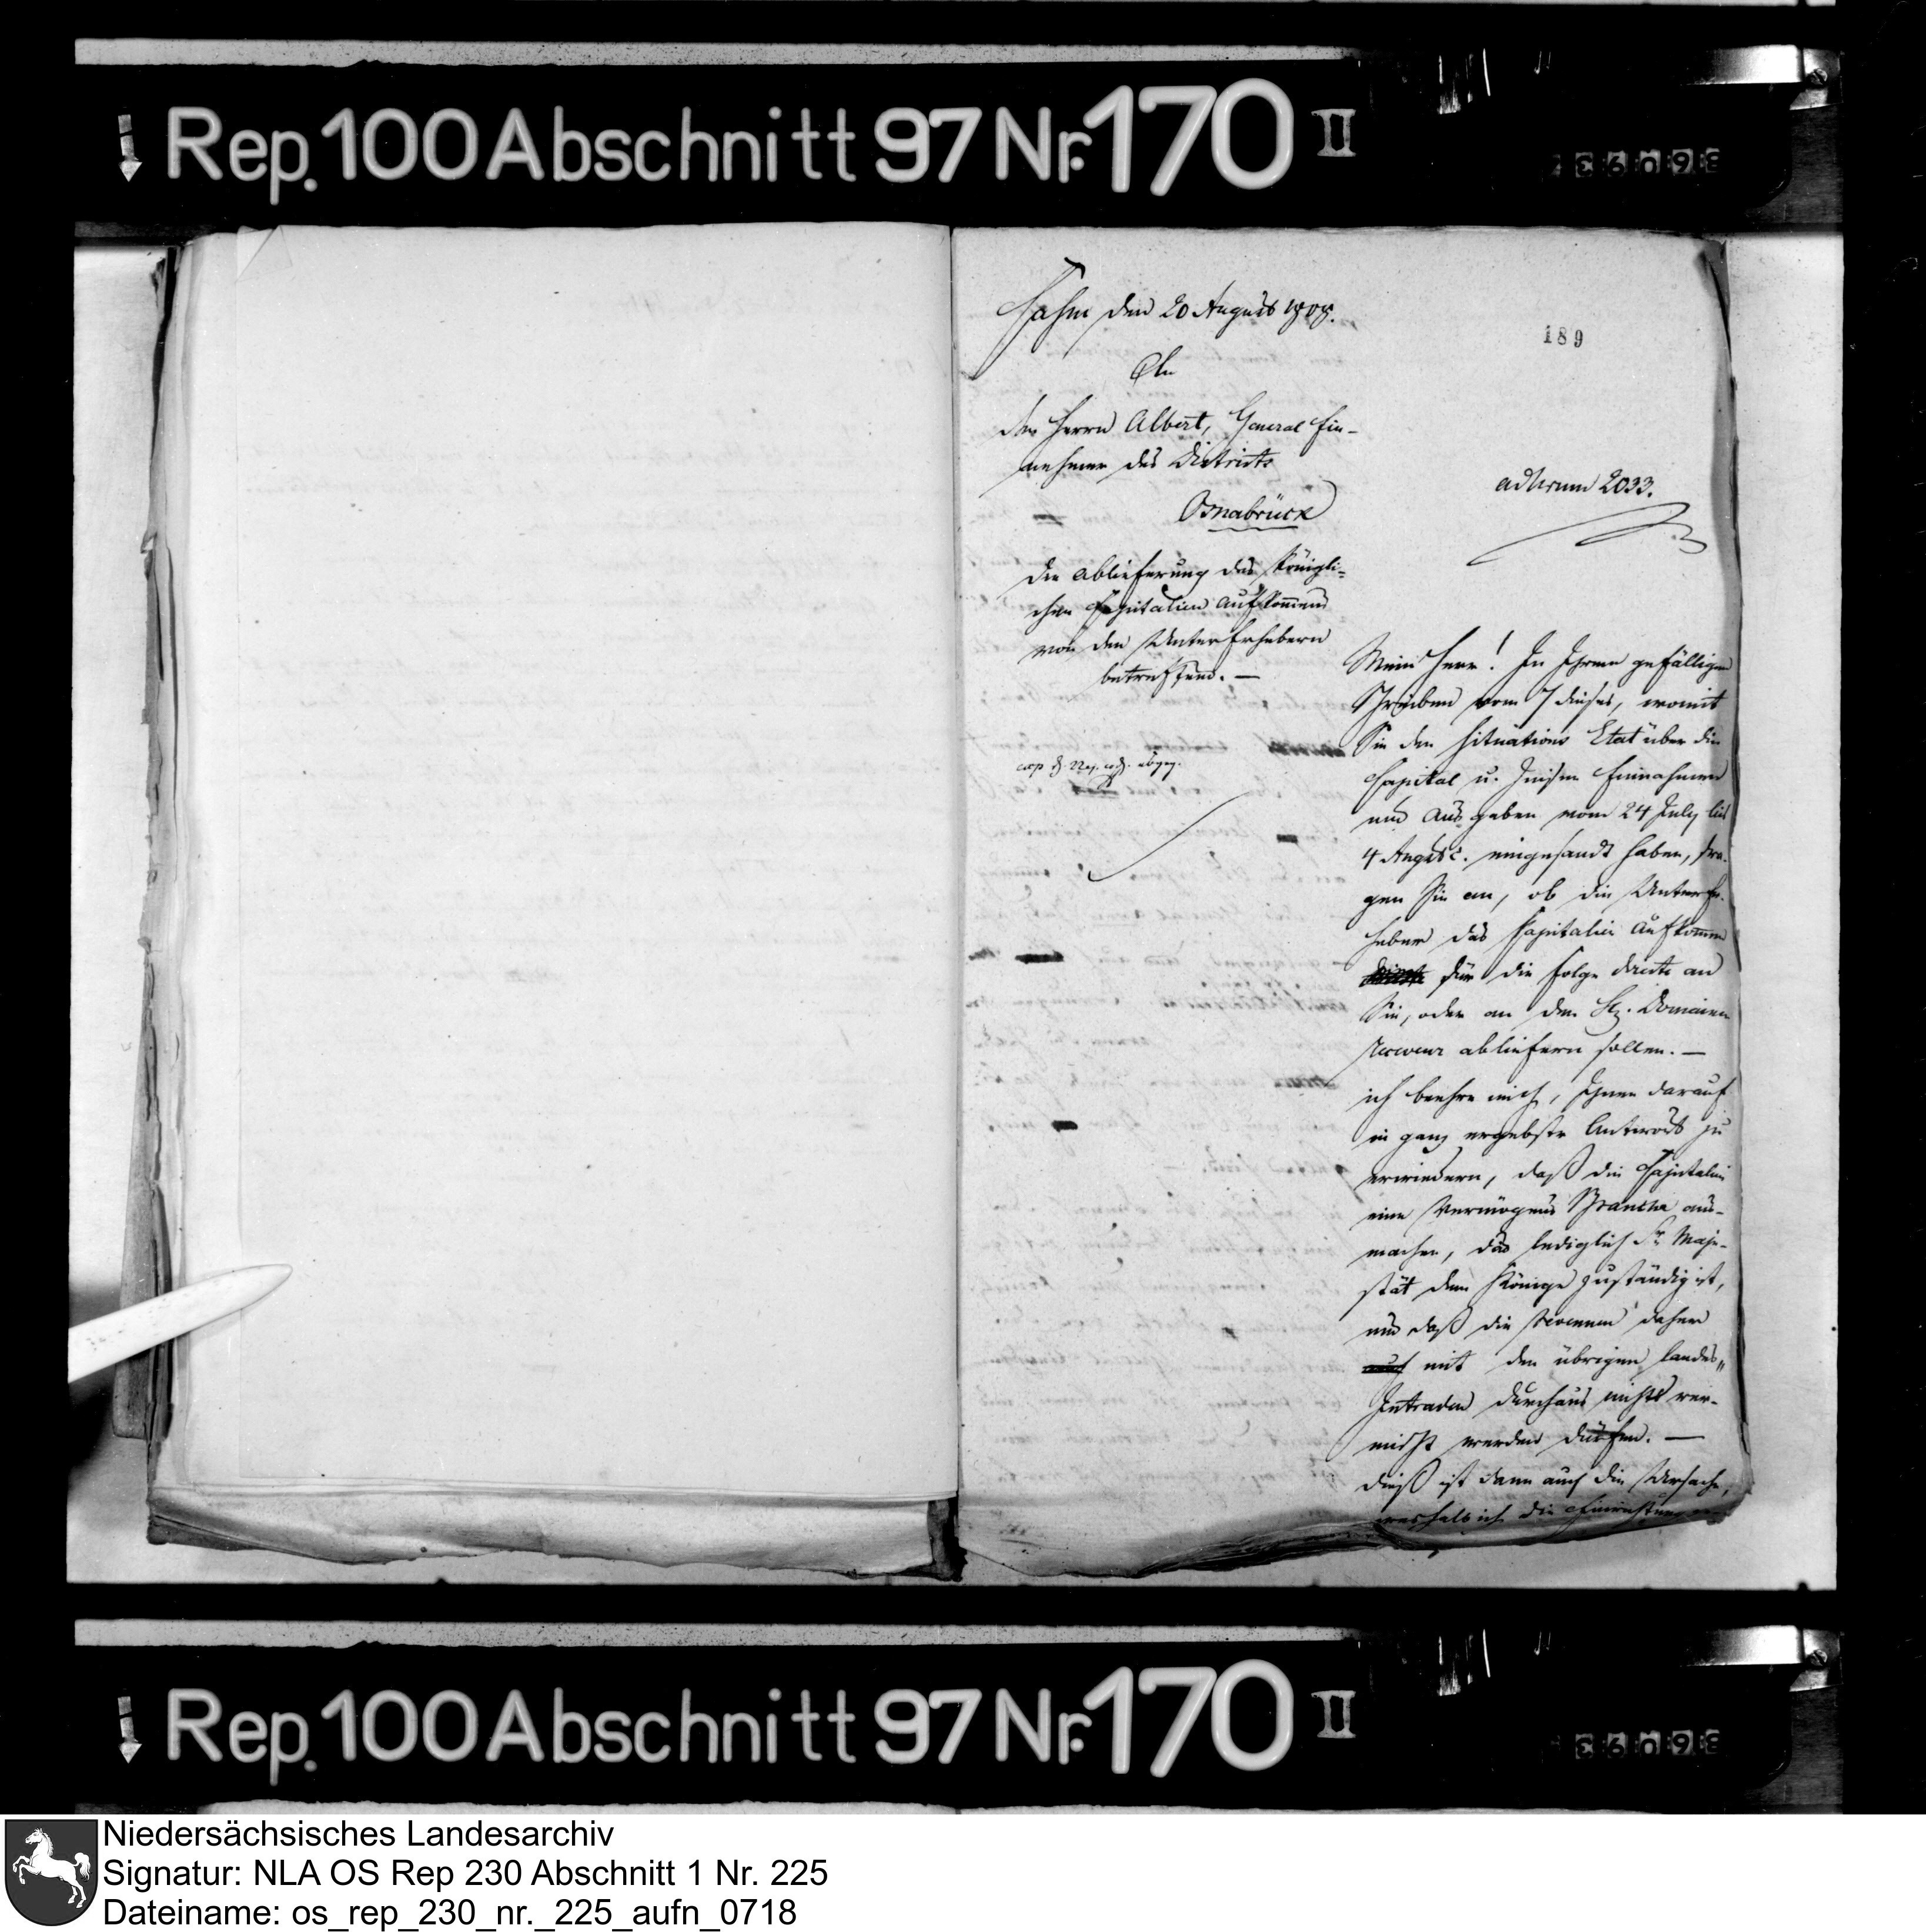 Rep. 100 Abschnitt 97 Nr. 170 II
36093
den 20 August 1808.
189
An
den Herrn Albert, General Ein-
nehmer des Districts
Osnabrück
ad Num 2033.
Die Ablieferung des Königli-
chen Capitalien Aufkommens
von den Unter Erhebern
betreffend. —
Mein Herr! In Ihrem gefälligen
Schreiben vom 7 dieses, womit
Sie den Situations Etat über die
Capital u. Zinsen Einnahmen
und Ausgaben vom 24 July bis
4 August c. eingesandt haben, fra-
gen Sie an, ob die Unter Er-
heber das Capitalien Aufkommen
für die Folge directe an
Sie, oder an den Domainen
Receveur abliefern sollen. —
ich beehre mich, Ihnen darauf
in ganz ergebenster Antwort zu
erwiedern, daß die Capitalien
eine Vermögens Branche aus-
machen, das lediglich Sr. Maje-
stät dem Könige zuständig ist,
und daß die Revenuen daher
auch mit den übrigen Landes-
Intraden durchaus nicht ver-
mischt werden dürfen. —
Dieß ist dann auch die Ursache,
weshalb ich die Einrichtung
Rep. 100 Abschnitt 97 Nr. 170 II
36093
Niedersächsisches Landesarchiv
Signatur: NLA OS Rep 230 Abschnitt 1 Nr. 225
Dateiname: os_rep_230_nr._225_aufn_0718